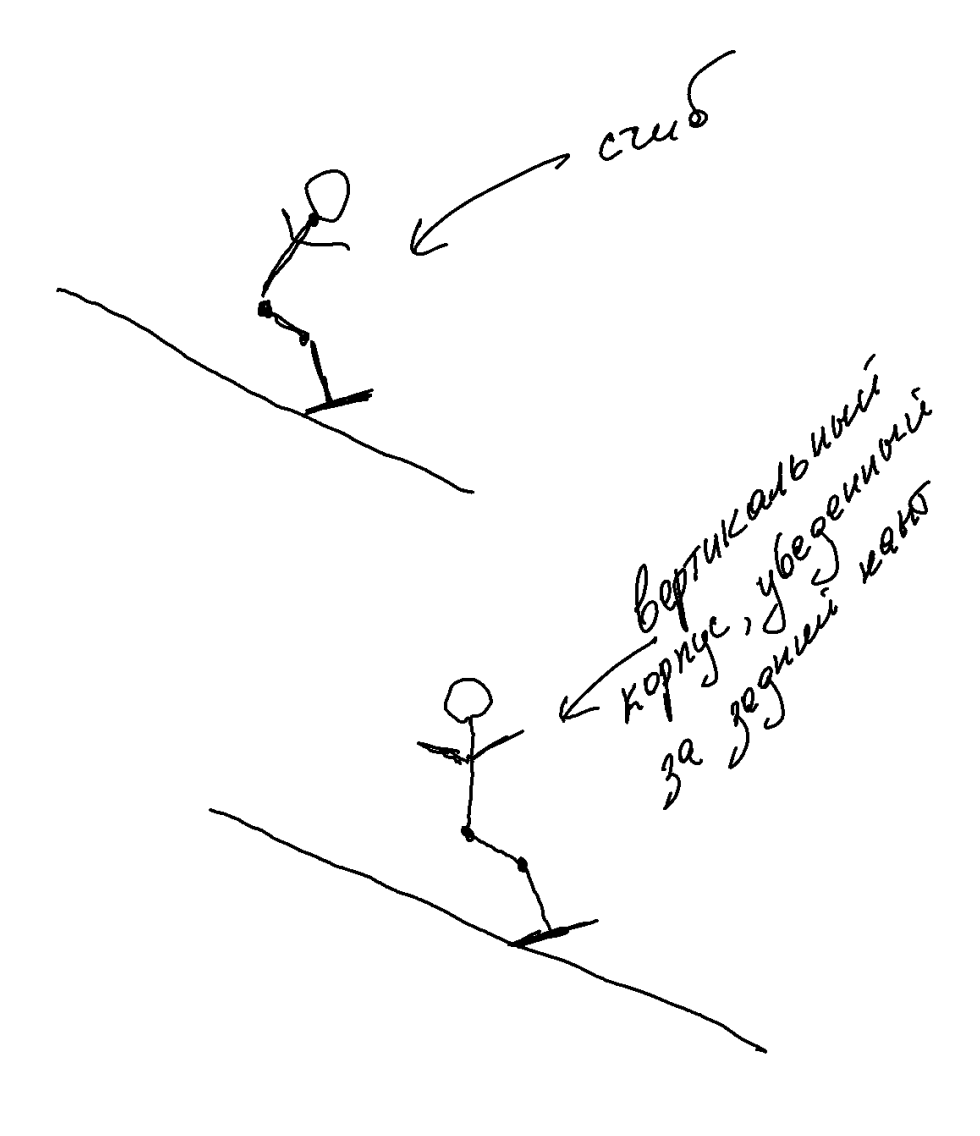 сгиб
вертикальный
корпус, уведенный
за задний кант